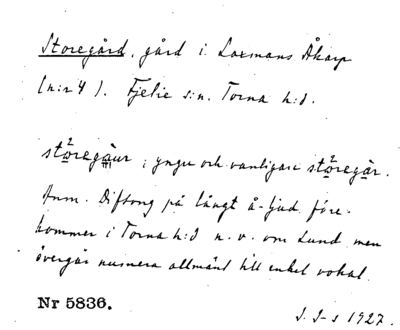 Storegård, gård i Laxmans Åkarp
(n:r 4). Fjelie s:n. Torna h:d.
storegåur; yngre och vanligare storegår.
Anm. Diftong på långt å-ljud före-
kommer i Torna h:d n.v. om Lund men
övergår numera allmänt till enkel vokal.
Nr 5836.
1927.